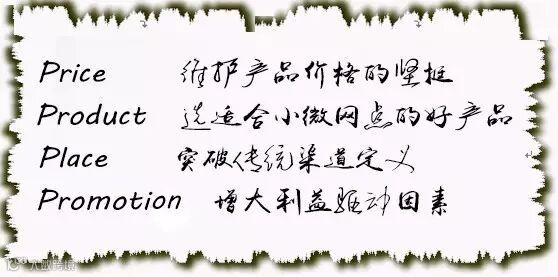 Price 维护产品价格的坚挺
Product 选适合小微网点的好产品
Place 突破传统渠道定义
Promotion 增大利益驱动因素
大数跨境